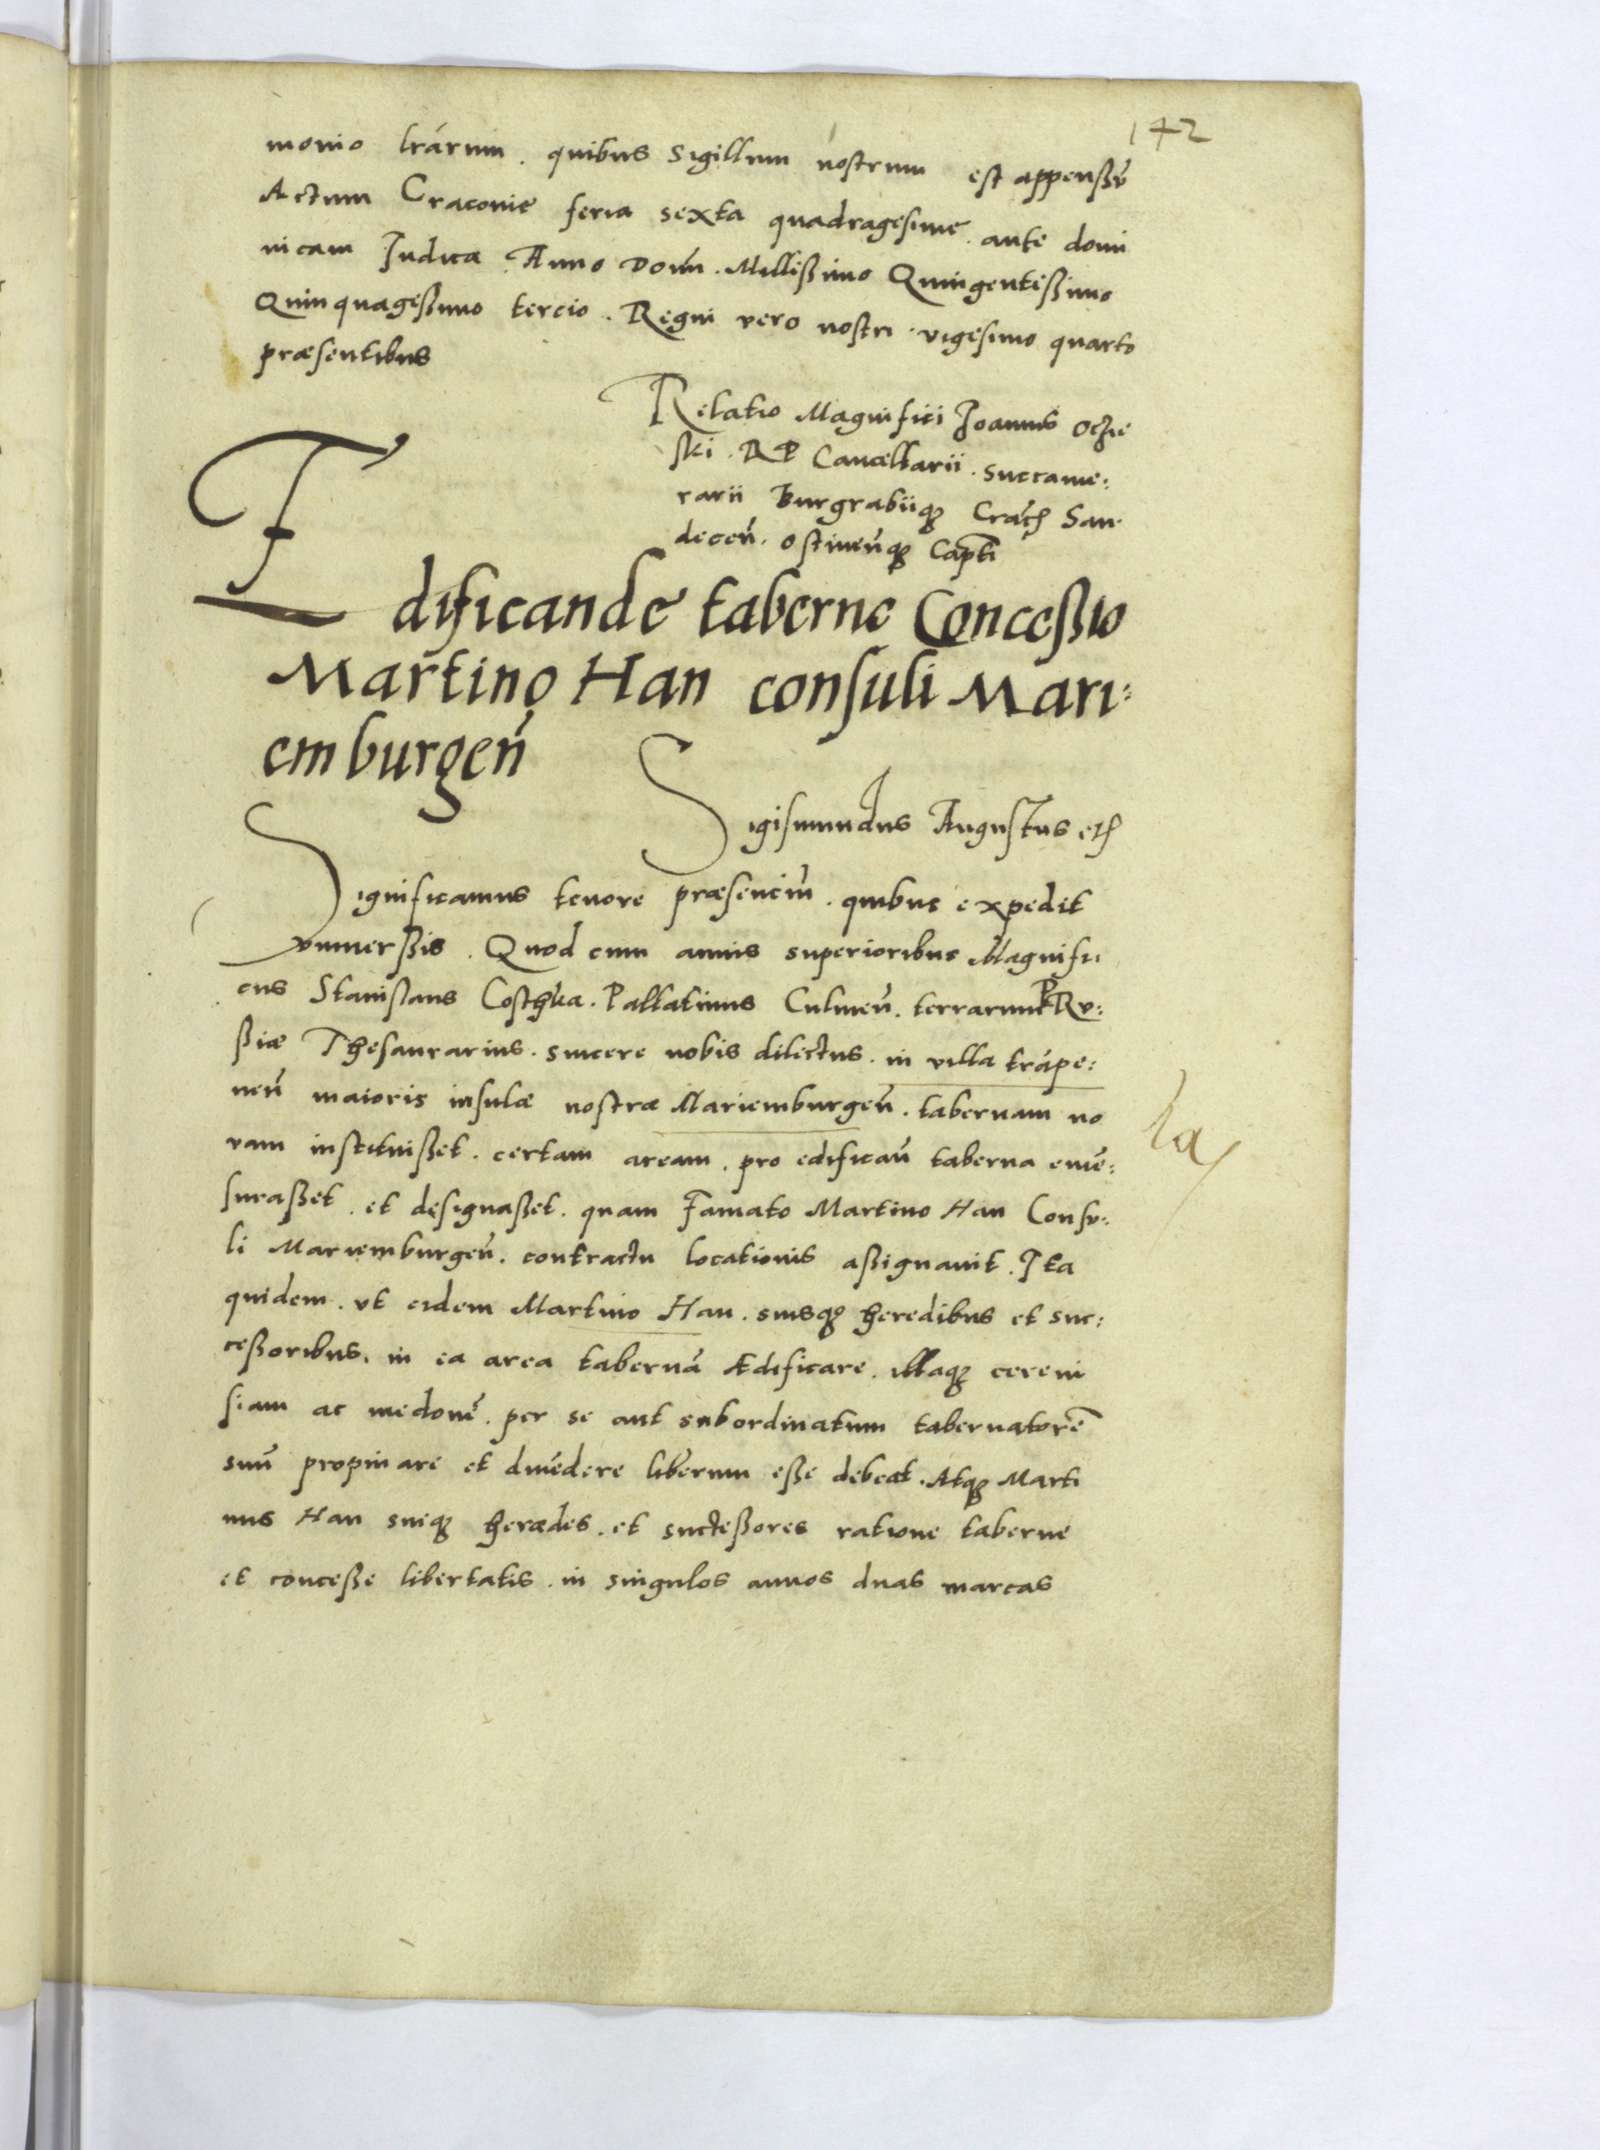 142
monio lrārum. quibus sigillum nostrum est appenssū
Actum Cracovie feria sexta quadragesime. ante domi
nicam Judica Anno Domī. Millissimo Quingentissimo
Quinquagessimo tercio. Regni vero nostri. vigesimo quarto
præsentibus
Relatio Magnifici Joannis Oczie
ski. RP Cancellarii. succame:
rarii Burgrabiiq3 Cracꝭ San
deceñ. ostineñq3 Capti
Edificande taberne Concessio
Martino Han consuli Mari:
emburgeñ
Sigismundus Augustus etꝭ
Significamus tenore præsenciū. quibus expedit
vniuerssis. Quod cum annis superioribus Magnifi
cus Stanislaus Costhka. Pallatinus Culmeñ. terrarum Prv:
ssiæ Thesaurarius. sincere nobis dilectus. in villa trāpe:
neñ maioris insulæ nostræ Mariemburgeñ. tabernam no
vam instituisset. certam aream. pro edificañ taberna emē:
surasset. et designasset. quam Famato Martino Han Consv:
li Mariemburgeñ. contractu locationis assignauit. Ita
quidem. vt eidem Martino Han. suisq3 heredibus et suc:
cessoribus. in ea area tabernā Ædificare. illaq3 cerevi
siam ac medonē. per se aut subordinatum tabernatorē
suū propinare et divēdere liberum esse debeat. Atq3 Marti
nus Han suiq3 hærdes. et successores ratione taberne
et concesse libertatis. in singulos annos duas marcas